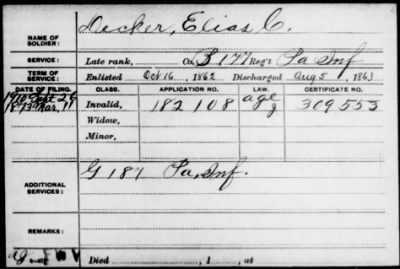 NAME OF SOLDIER: Decker, Elias C.
SERVICE: Late rank, Co. B 177 Reg't Pa Inf
TERM OF SERVICE: Enlisted Oct 16, 1862 Discharged Aug 5, 1863
DATE OF FILING. CLASS. APPLICATION NO. LAW. CERTIFICATE NO.
1910 Sept 26
1873 Mar. 11 Invalid, 182108 age 309553
Widow,
Minor,
ADDITIONAL SERVICES: G 187 Pa, Inf.
REMARKS:
Died , 1 , at